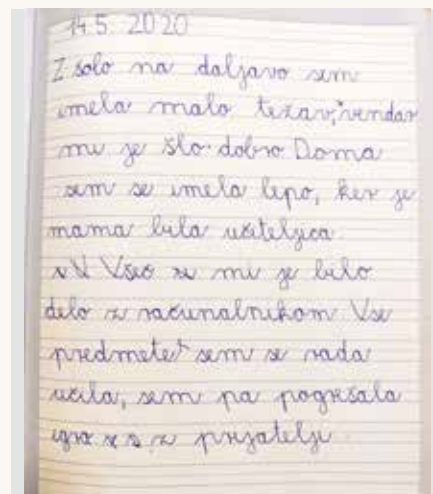 14.5. 2020
Z šolo na daljavo sem
imela malo težav, vendar
mi je šlo dobro. Doma
sem se imela lepo, ker je
mama bila učiteljica.
Všeč mi je bilo
delo z računalnikom Vse
predmete sem se rada
učila, sem pa pogrešala
igro s prijatelji.